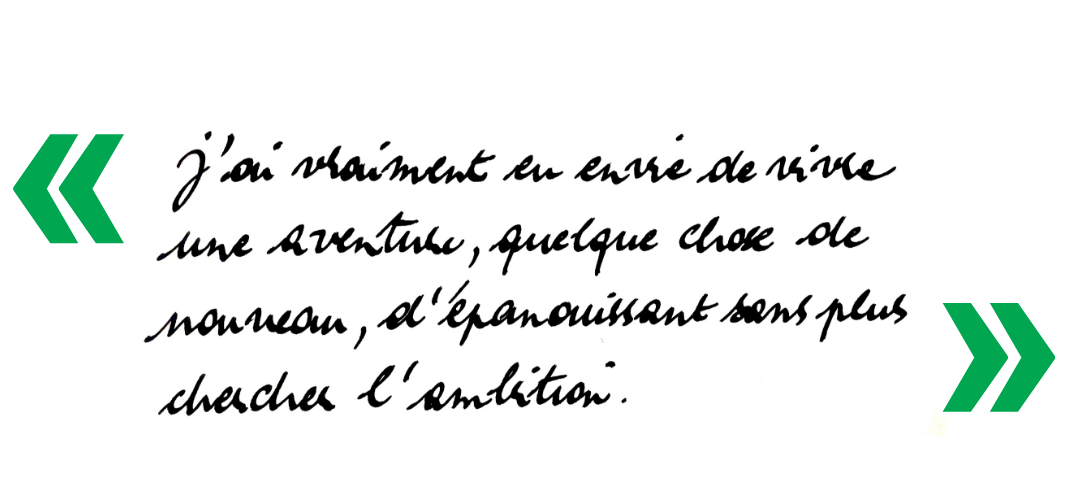 « j'ai vraiment eu envie de vivre
une aventure, quelque chose de
nouveau, d'épanouissant sans plus
chercher l'ambition. »